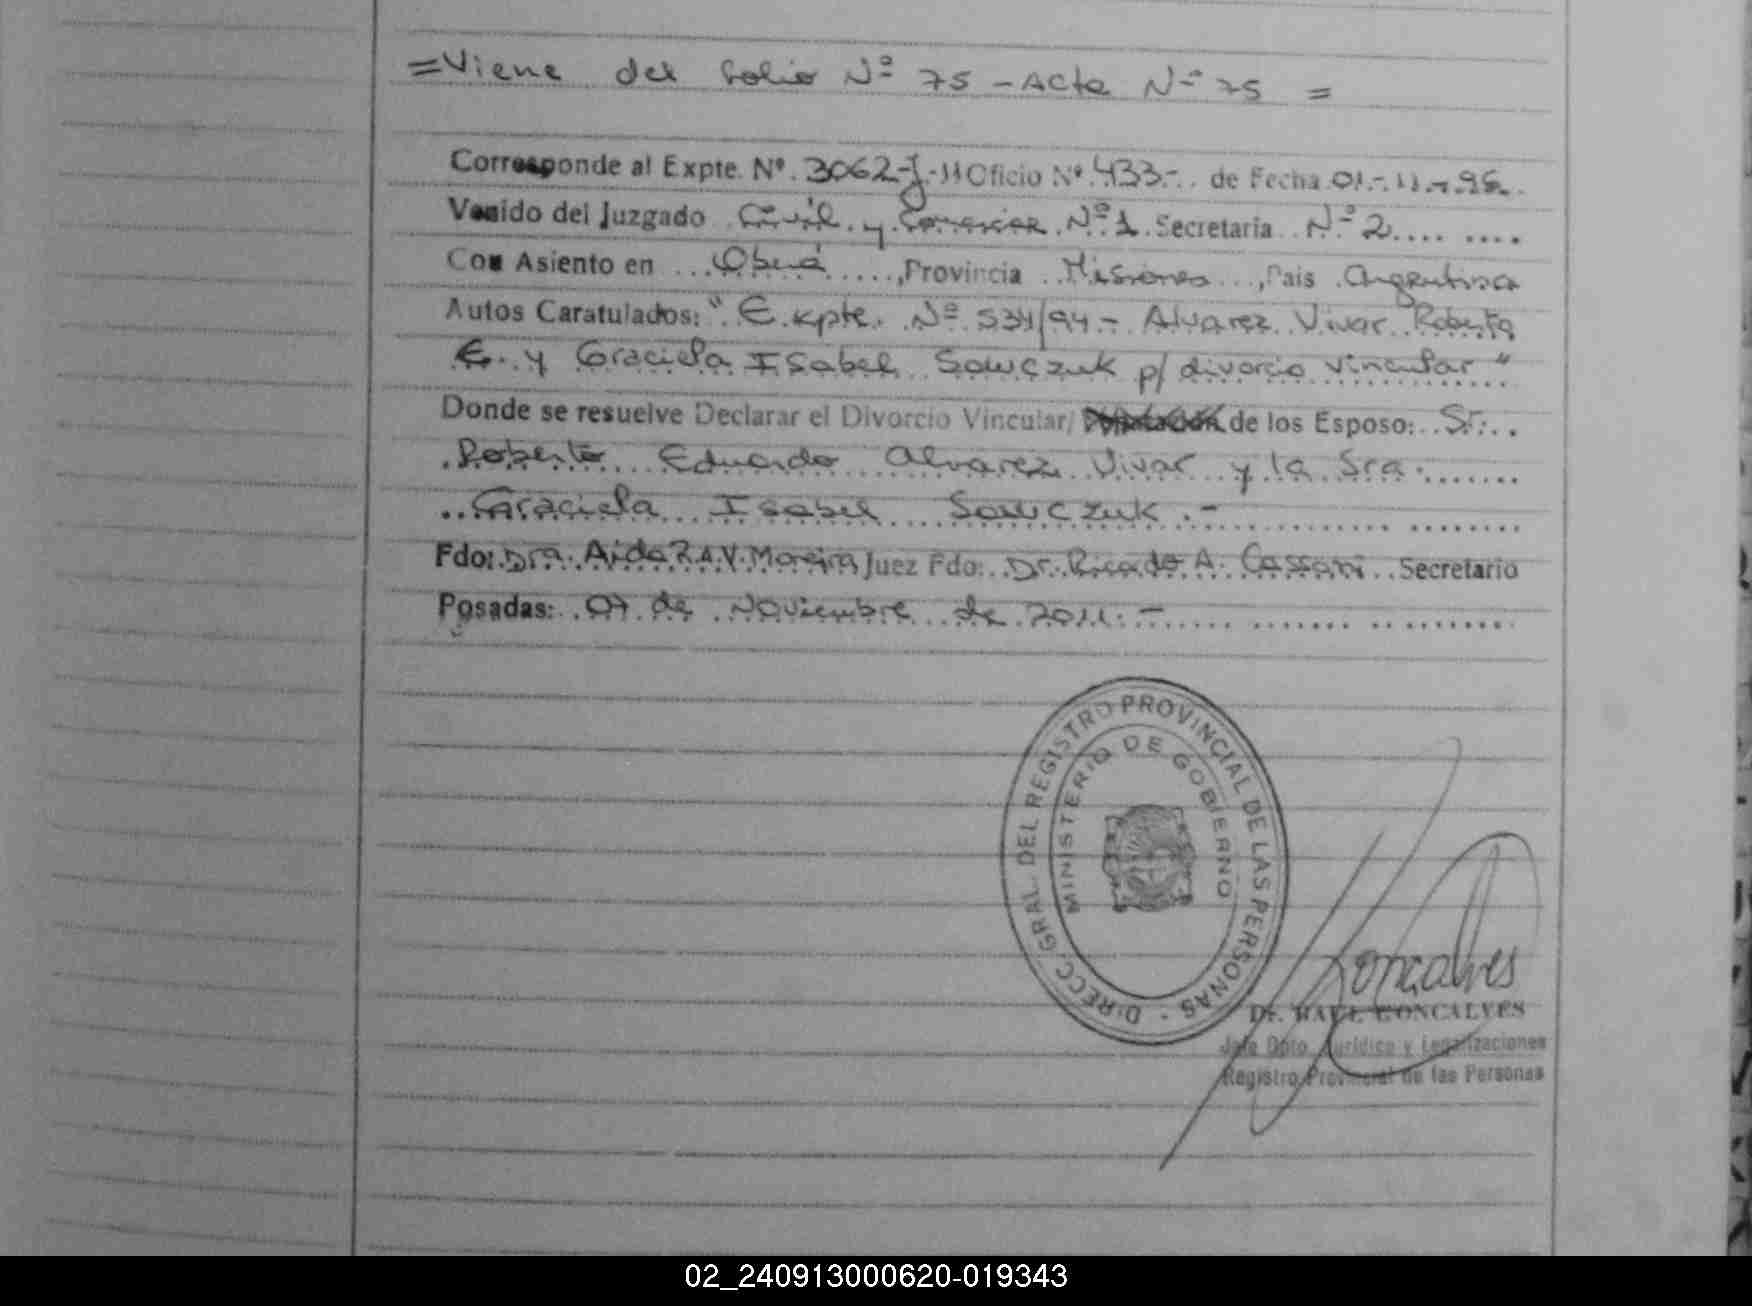 =Viene del folio Nº 75 - Acta Nº 75 =
Corresponde al Expte. Nº. 3062-J-11 Oficio Nº 433-. de Fecha 01-11-95.
Venido del Juzgado Civil y Comercial Nº 1. Secretaria Nº 2.... ....
Con Asiento en ...Oberá....., Provincia ..Misiones..., Pais .Argentina
Autos Caratulados: " Expte. Nº 534/94 - Alvarez Vivar Roberto
E. y Graciela Isabel Sowczuk p/ divorcio vincular "
Donde se resuelve Declarar el Divorcio Vincular/ de los Esposo: ..Sr...
.Roberto Eduardo Alvarez Vivar y la Sra.......
..Graciela Isabel Sowczuk.-
Fdo: Dra. Aida R.A.V. Moreira Juez Fdo: Dr. Ricardo A. Cassoni.. Secretario
Posadas: 07 de Noviembre de 2011.-
DIRECC. GRAL. DEL REGISTRO PROVINCIAL DE LAS PERSONAS -
MINISTERIO DE GOBIERNO
Goncalves
Dr. RAUL GONCALVES
Jefe Dpto. Jurídico y Legalizaciones
Registro Provincial de las Personas
02_240913000620-019343